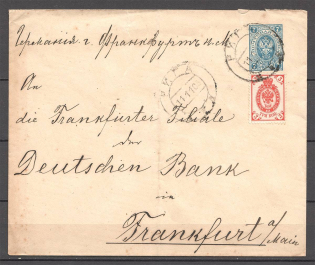 Германия г. Франкфуртъ н/М
An
die Frankfurter Filiale
der
Deutschen Bank
in
Frankfurt a/Main